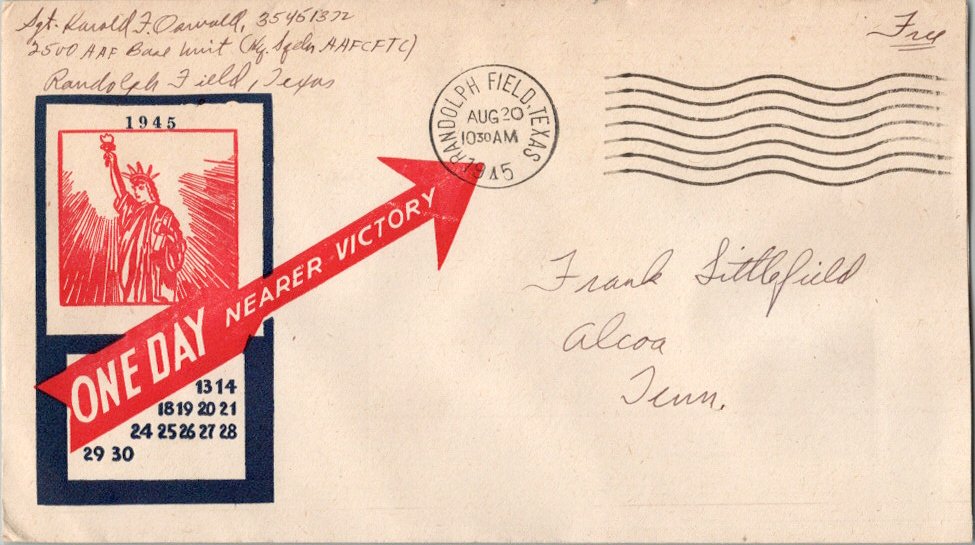 Sgt. Harold F. Oswald, 35451322
2500 AAF Base Unit (Hq. Sqdn. AAFCFTC)
Randolph Field, Texas
Free
RANDOLPH FIELD, TEXAS
AUG 20
10 30 AM
1945
1945
ONE DAY NEARER VICTORY
13 14
18 19 20 21
24 25 26 27 28
29 30
Frank Littlefield
Alcoa
Tenn.